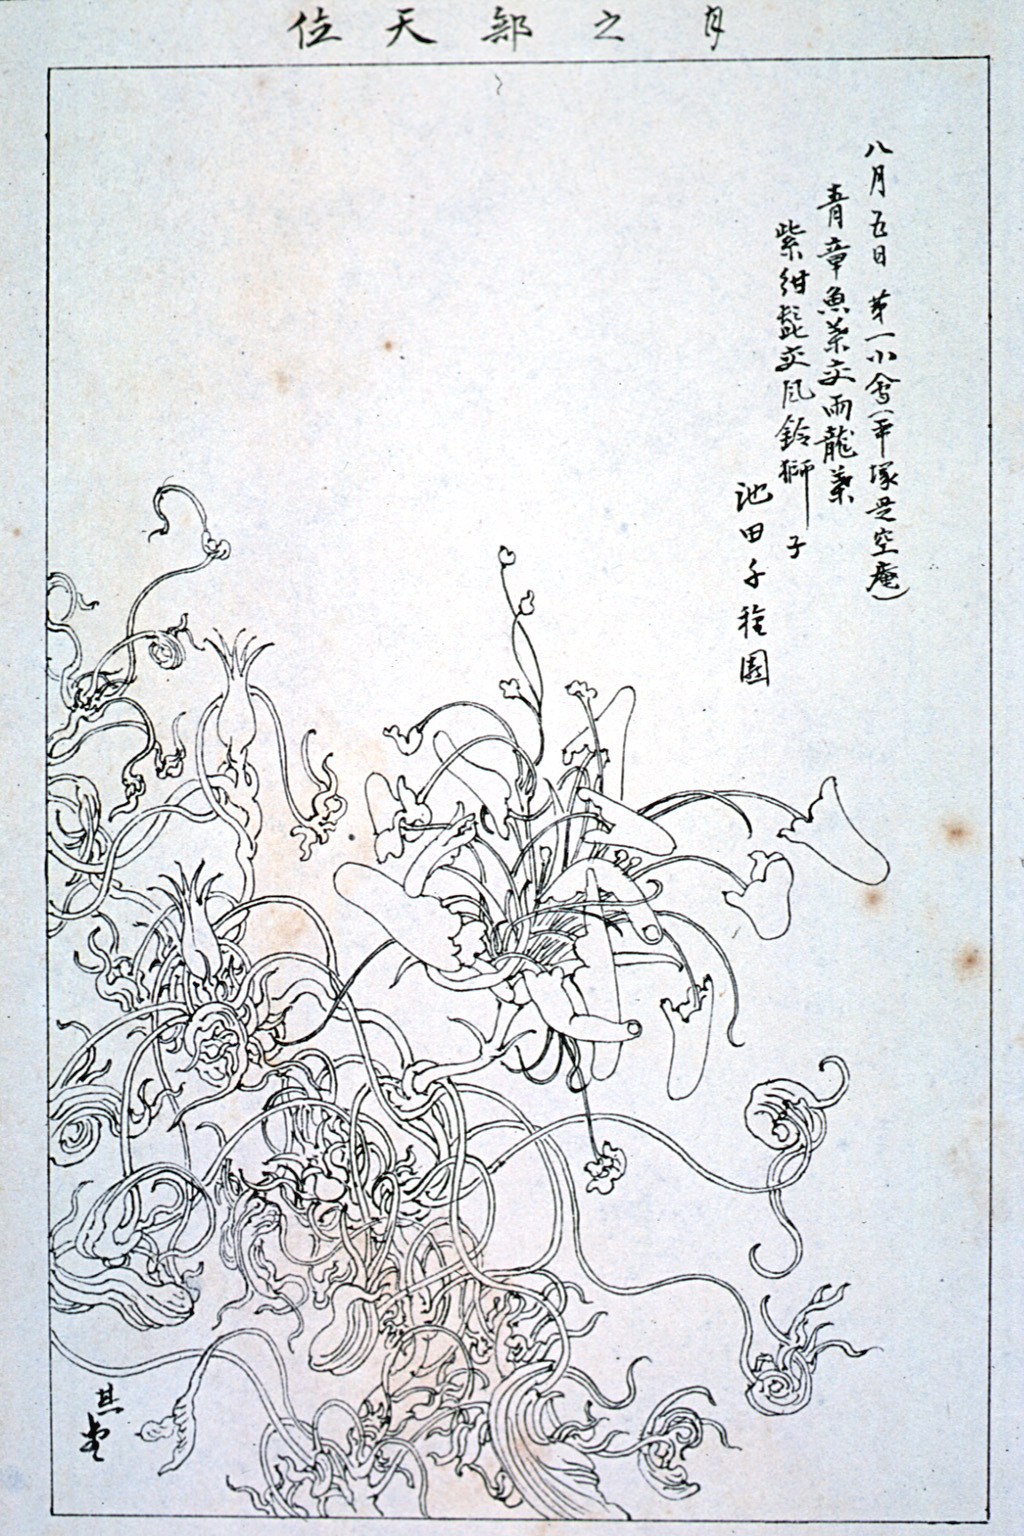 月之部天位
八月五日 第一小會(平塚是空庵)
青章魚葉交雨龍葉
紫紺髭交風鈴獅子
池田千種園
其堂